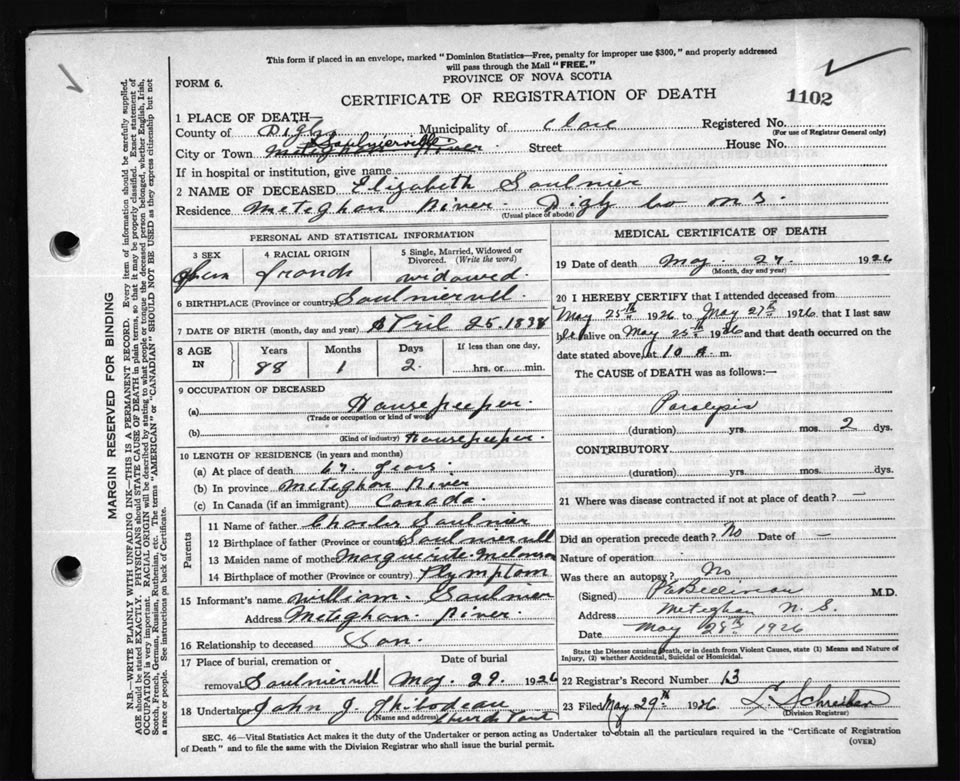 This form if placed in an envelope, marked "Dominion Statistics—Free, penalty for improper use $300," and properly addressed
will pass through the Mail "FREE."
FORM 6.
PROVINCE OF NOVA SCOTIA
CERTIFICATE OF REGISTRATION OF DEATH
1102
1 PLACE OF DEATH—
County of Digby Municipality of Clare Registered No.
(For use of Registrar General only)
City or Town Meteghan River Saulnierville Street House No.
If in hospital or institution, give name
2 NAME OF DECEASED Elizabeth Saulnier
Residence Meteghan River. Digby Co N S.
(Usual place of abode)
PERSONAL AND STATISTICAL INFORMATION
3 SEX 4 RACIAL ORIGIN 5 Single, Married, Widowed or Divorced. (Write the word)
French widowed.
6 BIRTHPLACE (Province or country) Saulniervill.
7 DATE OF BIRTH (month, day and year) April 25. 1838
8 AGE IN Years Months Days If less than one day,
88 1 2. hrs. or min.
9 OCCUPATION OF DECEASED
(a) Housekeeper.
(Trade or occupation or kind of work)
(b) Housekeeper.
(Kind of industry)
10 LENGTH OF RESIDENCE (in years and months)
(a) At place of death 67. years.
(b) In province Meteghan River
(c) In Canada (if an immigrant) Canada.
Parents
11 Name of father Charles Saulnier
12 Birthplace of father (Province or country) Saulniervill
13 Maiden name of mother Marguerite Melanson
14 Birthplace of mother (Province or country) Plymptom
15 Informant's name William Saulnier
Address Meteghan River.
16 Relationship to deceased Son.
17 Place of burial, cremation or removal Date of burial
Saulniervill May. 29. 1926
18 Undertaker John J. Thibodeau
(Name and address) Church Point
MEDICAL CERTIFICATE OF DEATH
19 Date of death May. 27. 1926
(Month, day and year)
20 I HEREBY CERTIFY that I attended deceased from
May 25th 1926 to May 27th 1926 that I last saw
her alive on May 25th 1926 and that death occurred on
date stated above, at 10 A. m.
The CAUSE of DEATH was as follows:—
Paralysis
(duration) yrs. mos. 2 dys.
CONTRIBUTORY
(duration) yrs. mos. dys.
21 Where was disease contracted if not at place of death? —
Did an operation precede death? No Date of —
Nature of operation
Was there an autopsy? No
(Signed) M.D.
Address Meteghan N. S.
Date May 28th 1926
State the Disease causing Death, or in death from Violent Causes, state (1) Means and Nature of
Injury, (2) whether Accidental, Suicidal or Homicidal.
22 Registrar's Record Number 13
23 Filed May 29th 1926 L. Schreiber
(Division Registrar)
SEC. 46—Vital Statistics Act makes it the duty of the Undertaker or person acting as Undertaker to obtain all the particulars required in the "Certificate of Registration
of Death" and to file the same with the Division Registrar who shall issue the burial permit. (OVER)
MARGIN RESERVED FOR BINDING
N.B.—WRITE PLAINLY WITH UNFADING INK—THIS IS A PERMANENT RECORD. Every item of information should be carefully supplied.
AGE should be stated EXACTLY. PHYSICIANS should STATE CAUSE OF DEATH in plain terms, so that it may be properly classified. Exact statement of
OCCUPATION is very important. RACIAL ORIGIN will be described by stating to what people or tongue the deceased person belonged, whether English, Irish,
Scotch, French, German, Russian, Ruthenian, etc. The terms "AMERICAN" or "CANADIAN" SHOULD NOT BE USED as they express citizenship but not
a race or people. See instructions on back of Certificate.